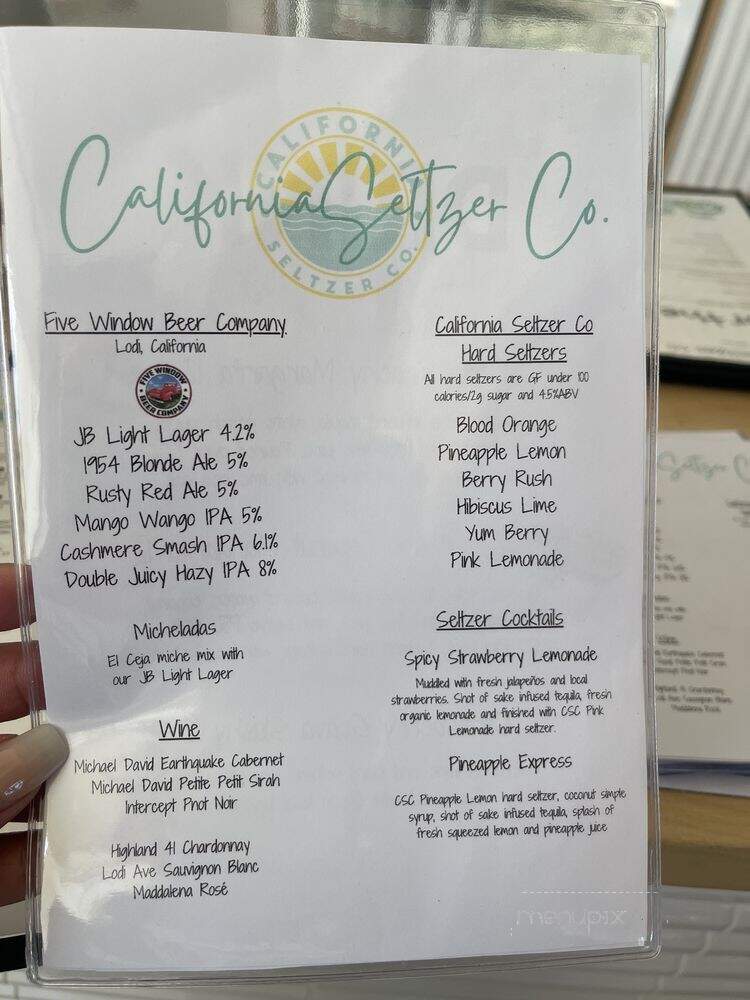 California Seltzer Co.
CALIFORNIA
SELTZER CO.
Five Window Beer Company
Lodi, California
FIVE WINDOW
BEER COMPANY
JB Light Lager 4.2%
1954 Blonde Ale 5%
Rusty Red Ale 5%
Mango Wango IPA 5%
Cashmere Smash IPA 6.1%
Double Juicy Hazy IPA 8%
Micheladas
El Ceja miche mix with
our JB Light Lager
Wine
Michael David Earthquake Cabernet
Michael David Petite Petit Sirah
Intercept Pnot Noir
Highland 41 Chardonnay
Lodi Ave Sauvignon Blanc
Maddalena Rosé
California Seltzer Co
Hard Seltzers
All hard seltzers are GF under 100
calories/2g sugar and 4.5%ABV
Blood Orange
Pineapple Lemon
Berry Rush
Hibiscus Lime
Yum Berry
Pink Lemonade
Seltzer Cocktails
Spicy Strawberry Lemonade
Muddled with fresh jalapeños and local
strawberries. Shot of sake infused tequila, fresh
organic lemonade and finished with CSC Pink
Lemonade hard seltzer.
Pineapple Express
CSC Pineapple Lemon hard seltzer, coconut simple
syrup, shot of sake infused tequila, splash of
fresh squeezed lemon and pineapple juice
menupix